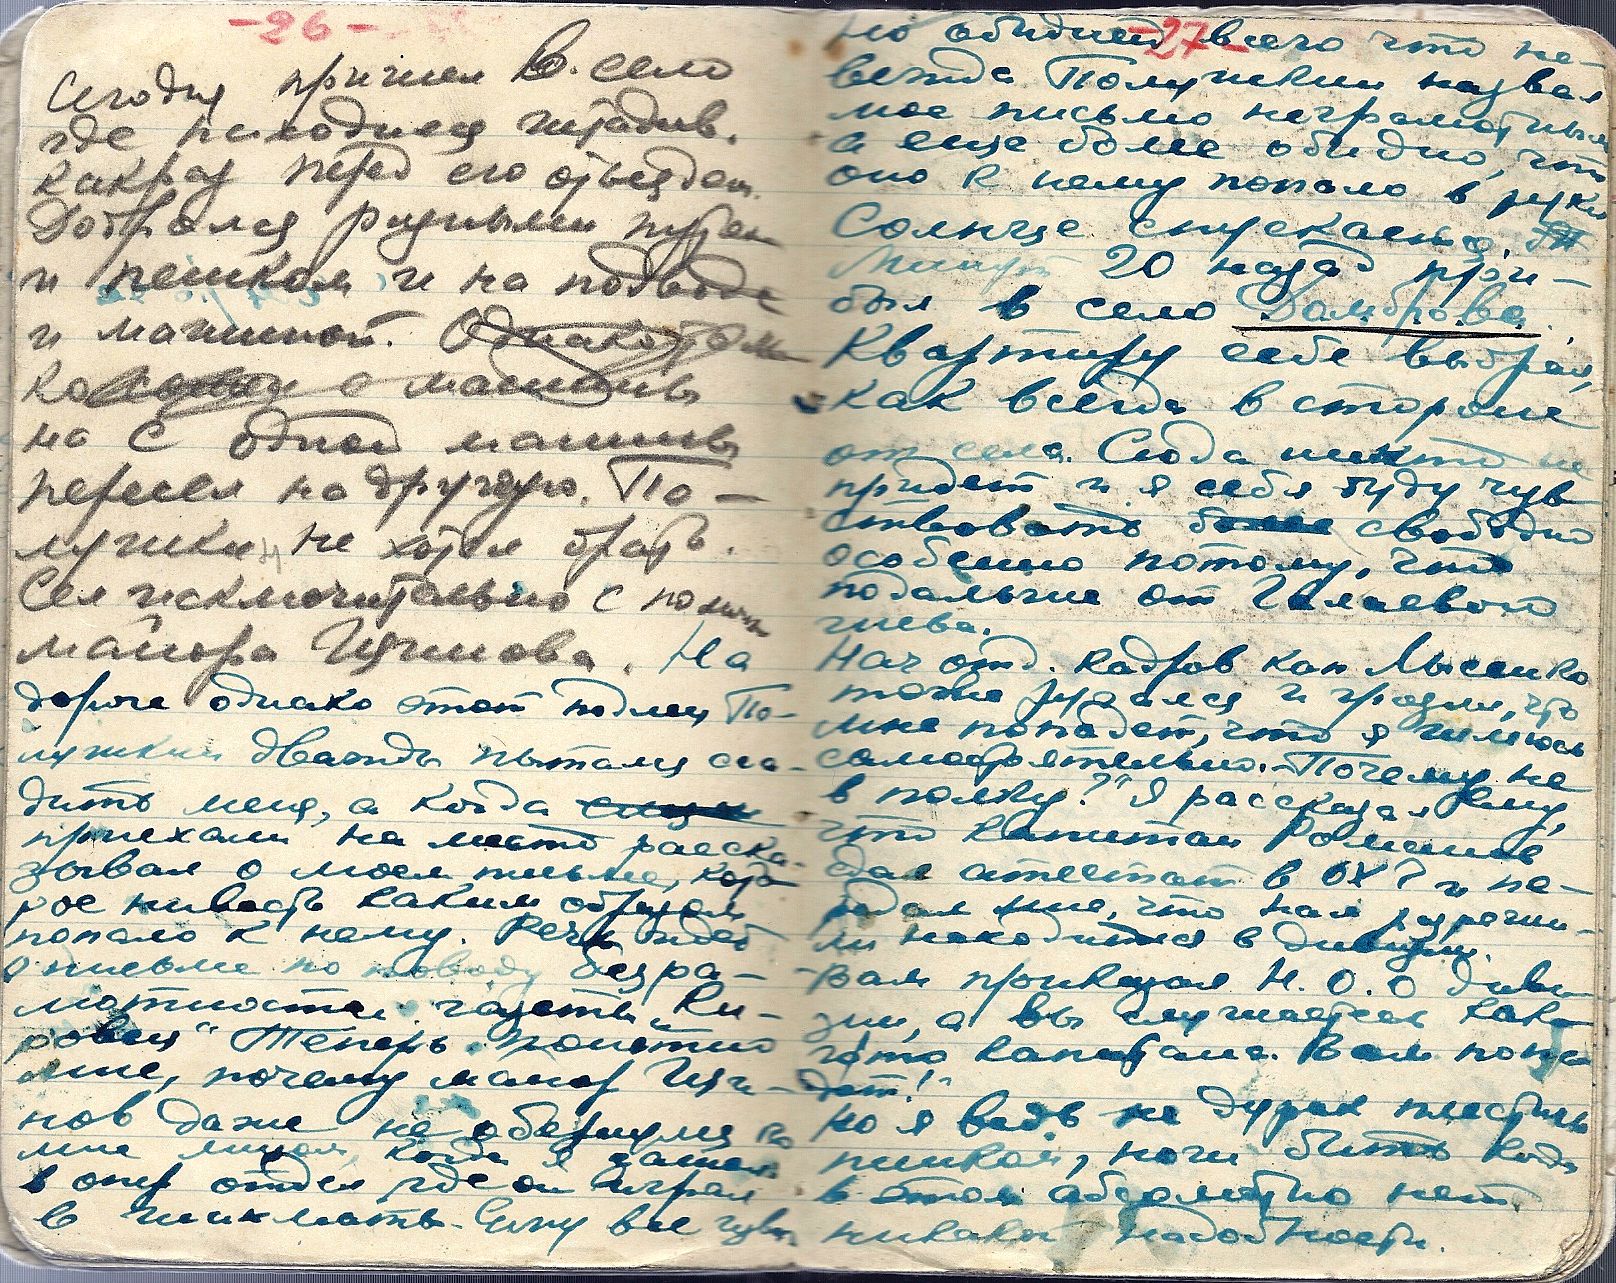 -26-
Сегодня пришел в село
где находился штадив.
Какраз перед его отъездом.
Добрался разными путями
и пешком и на подводе
и машиной. Однако
на с одной машины
пересел на другую. По-
лушкин не хотел брать.
Сел исключительно с помощью
майора . На
дороге однако этот подлец По-
лушкин дважды пытался сса-
дить меня, а когда
приехали на место расска-
зывал о моем письме, кото
рое нивесть каким образом
попало к нему. Речь идет
о письме по поводу безгра-
мотности газеты „Ки-
ровец“ Теперь понятно
мне, почему майор
нов даже не обернулся ко
мне лицом, когда я зашел
в опер отдел где он играл
в шахматы. Ему все
-27-
Но обидней всего что не-
вежда Полушкин назвал
мое письмо неграмотным
а еще более обидно, что
оно к нему попало в руки
Солнце спускается.
Минут 20 назад при-
был в село Домброва.
Квартиру себе выбрал,
как всегда в стороне
от села. Сюда никто не
придет и я себя буду чув
ствовать более свободно
особенно потому, что
подальше от Галаевого
гнева.
Нач отд. кадров кап Лысенко
тоже ругался и грозил, что
мне попадет, что я шляюсь
самостоятельно. "Почему не
в полку?" Я рассказал ему,
что капитан Романов
сдал атестат в ОХ? и пе-
редал мне, что нам разреши-
ли находится в дивизии.
-Вам приказал Н. О. О диви
зии, а вы слушаетесь како
го то капитана. Вам попа
дет!"
Но я ведь не дурак плестись
пешком, ноги бить когда
в этом абсолютно нет
никакой надобности.